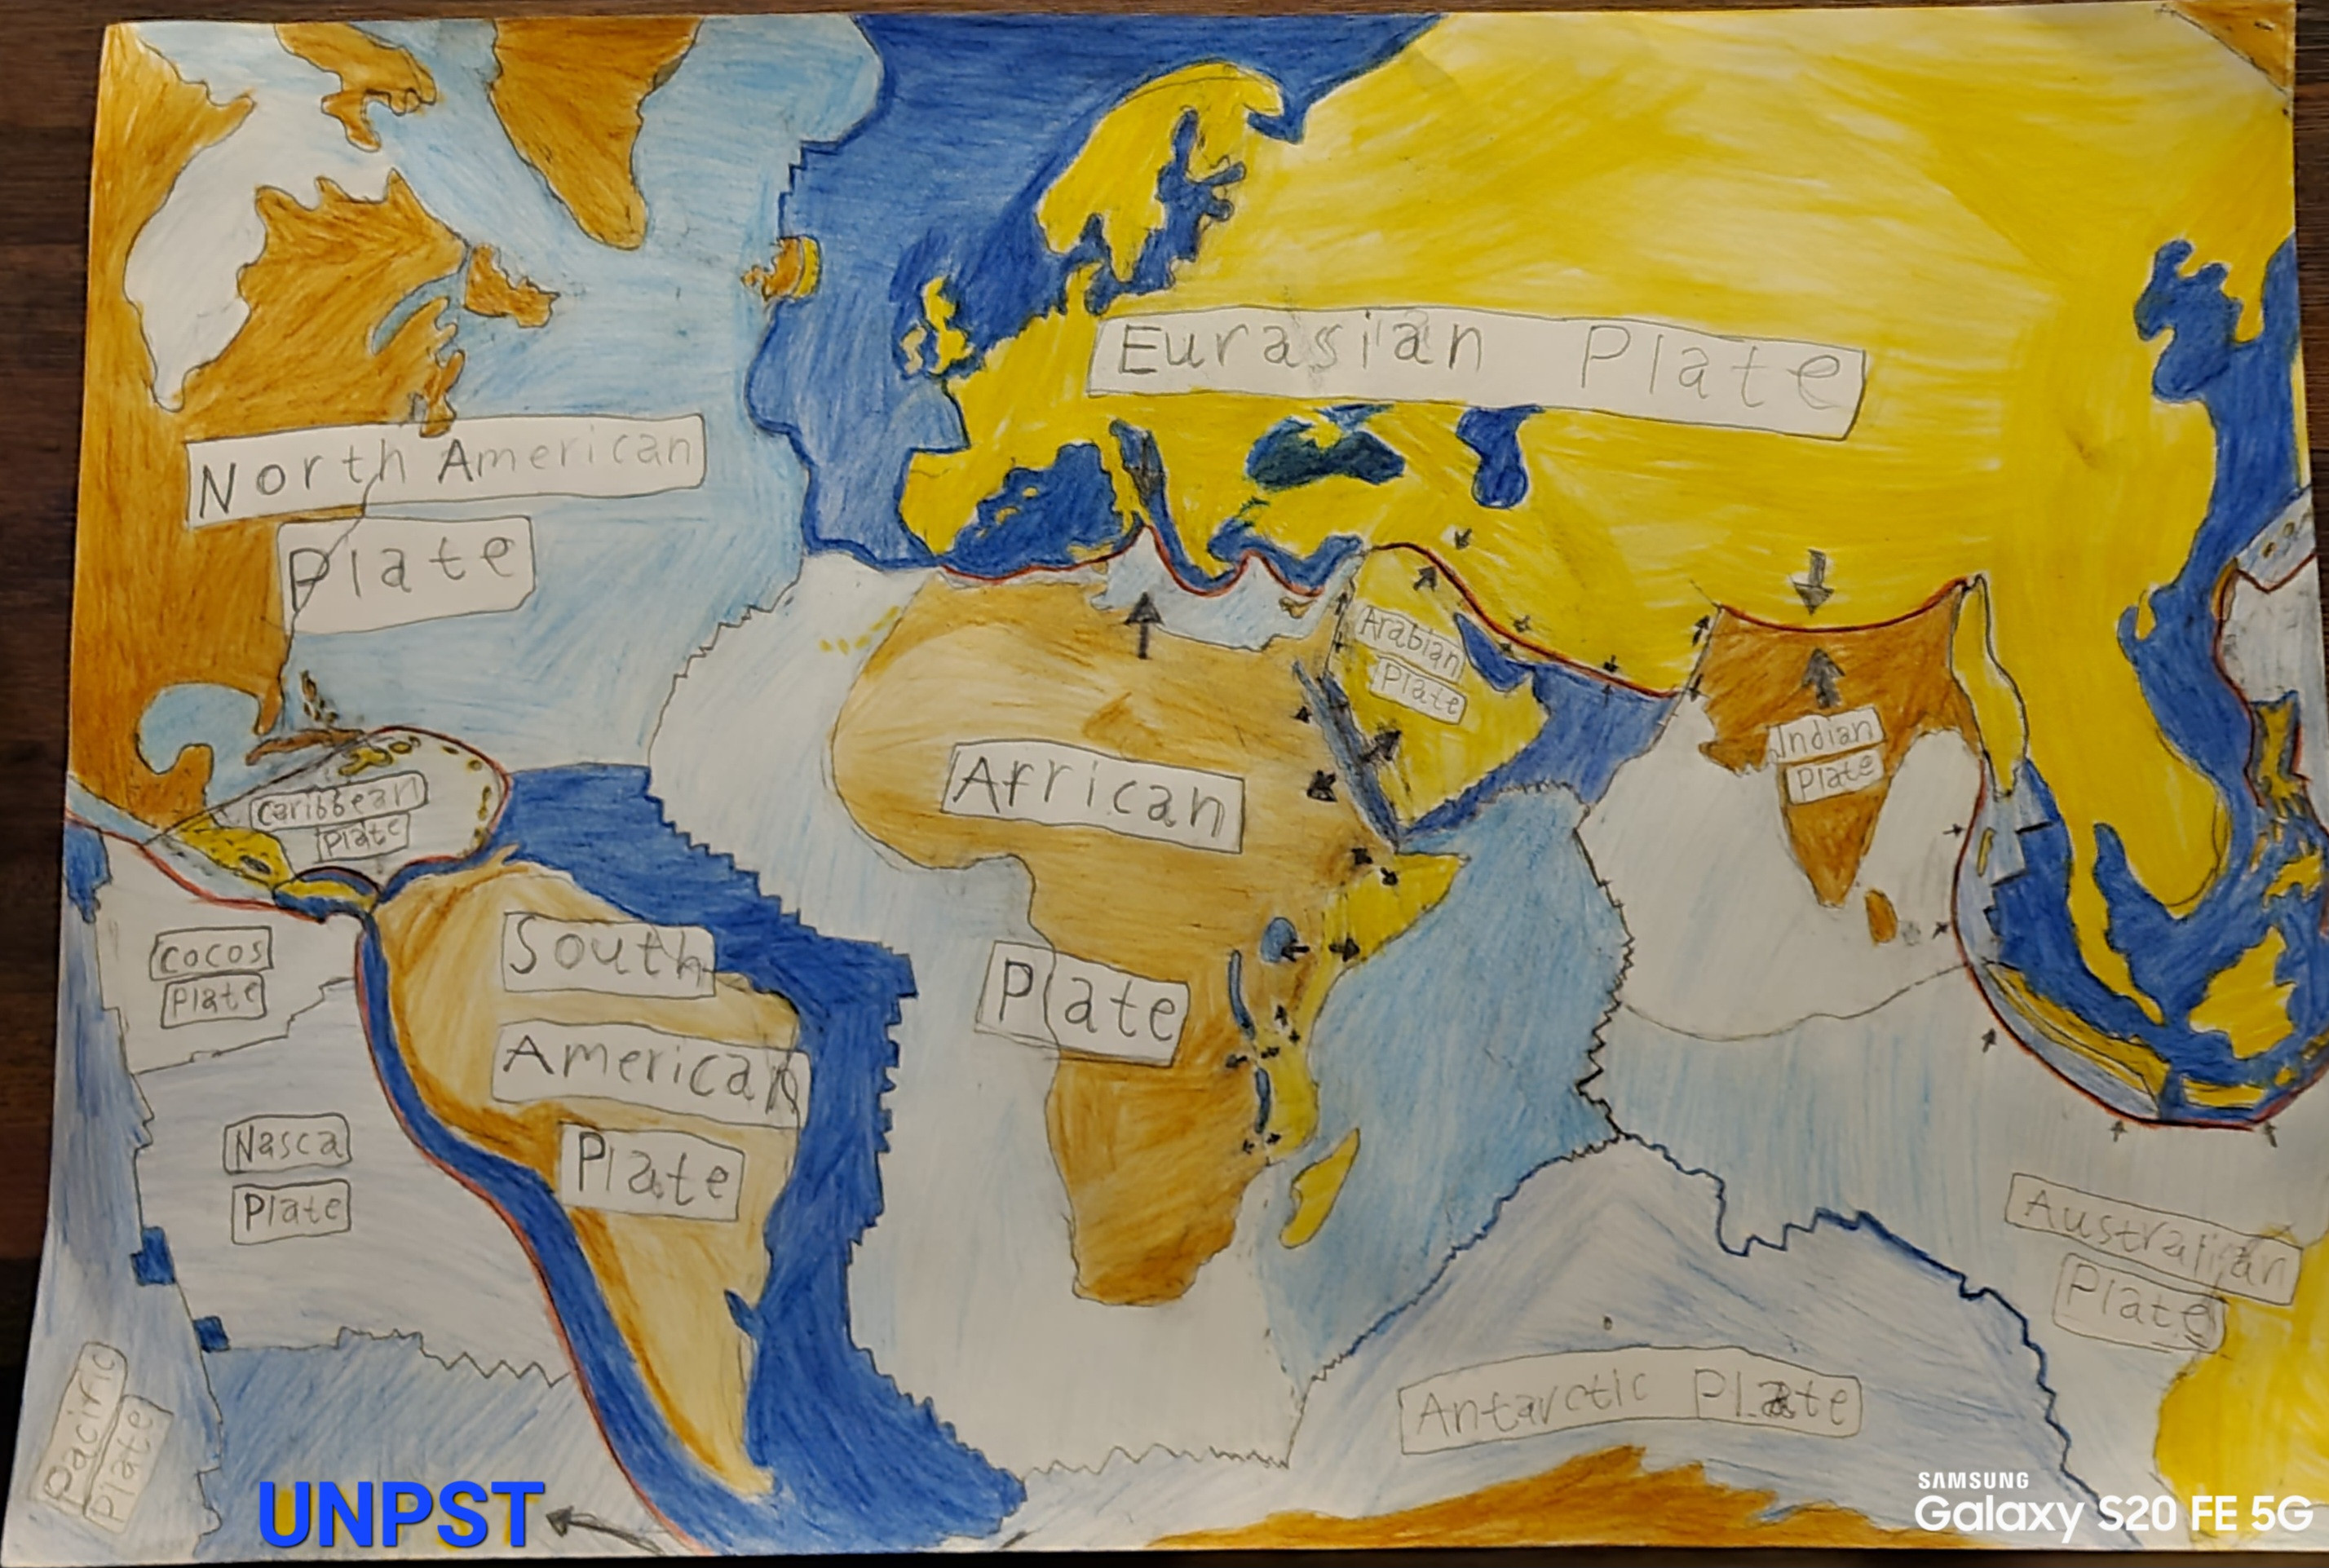 Eurasian Plate
North American
Plate
Arabian
Plate
Indian
Plate
African
Plate
Caribbean
Plate
Cocos
Plate
South
American
Plate
Nasca
Plate
Australian
Plate
Antarctic Plate
Pacific
Plate
UNPST
SAMSUNG
Galaxy S20 FE 5G